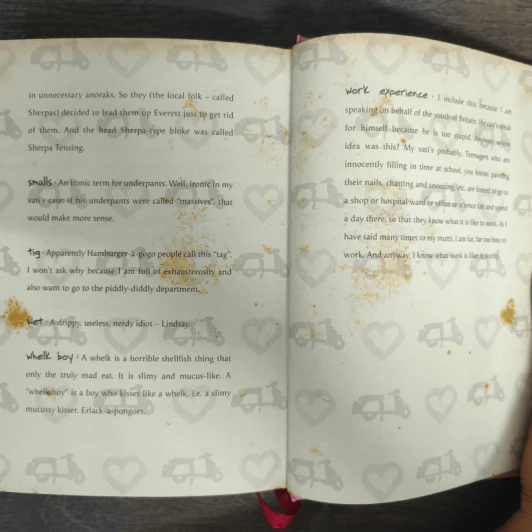 in unnecessary anoraks. So they (the local folk – called
Sherpas) decided to lead them up Everest just to get rid
of them. And the head Sherpa-type bloke was called
Sherpa Tensing.
smalls · An ironic term for underpants. Well, ironic in my
vati's case: if his underpants were called "massives", that
would make more sense.
tig · Apparently Hamburger-a-gogo people call this "tag".
I won't ask why because I am full of exhausterosity and
also want to go to the piddly-diddly department.
wet · A drippy, useless, nerdy idiot – Lindsay.
whelk boy · A whelk is a horrible shellfish thing that
only the truly mad eat. It is slimy and mucus-like. A
"whelk boy" is a boy who kisses like a whelk, i.e. a slimy
mucussy kisser. Erlack-a-pongoes.
work experience · I include this because I am
speaking on behalf of the youth of Britain. He can't speak
for himself because he is too stupid. Anyway, whose
idea was this? My vati's probably. Teenagers who are
innocently filling in time at school, you know, painting
their nails, chatting and snoozing, etc. are forced to go to
a shop or hospital ward or office or science lab and spend
a day there, so that they know what it is like to work. As I
have said many times to my mutti, I am far, far too busy to
work. And anyway, I know what work is like it is